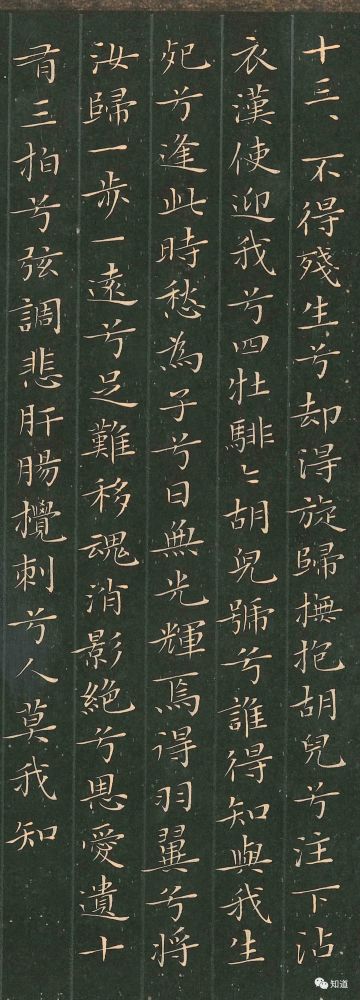 十三、不得殘生兮却淂旋歸撫抱胡兒兮注下沾
衣漢使迎我兮四牡騑〻胡兒號兮誰得知與我生
死兮逢此時愁為子兮日無光輝焉得羽翼兮將
汝歸一步一遠兮足難移魂消影絶兮恩愛遺十
有三拍兮弦調悲肝腸攪刺兮人莫我知
知道